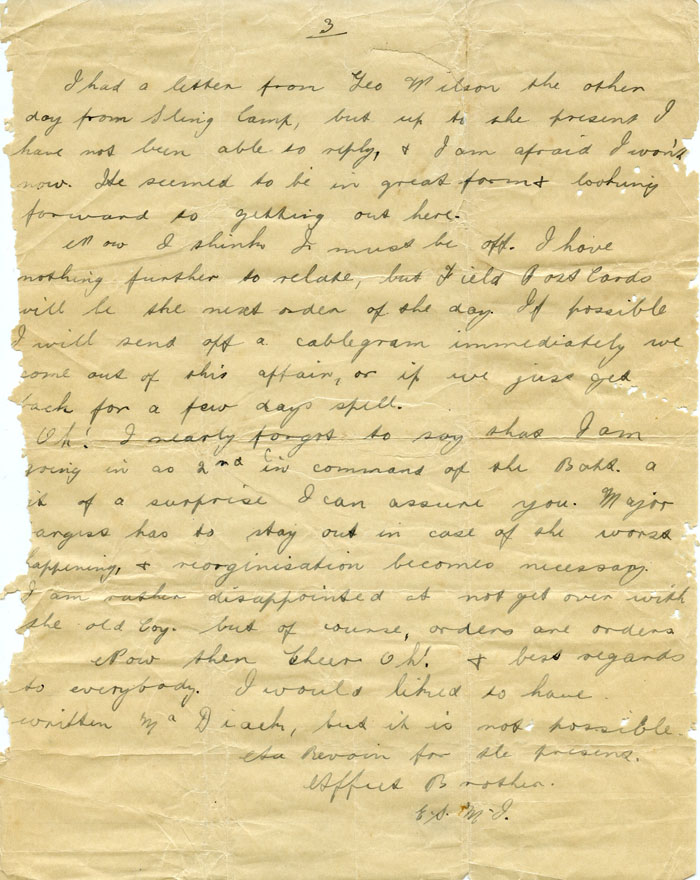 3
I had a letter from Geo Wilson the other
day from Sling Camp, but up to the present I
have not been able to reply, & I am afraid I won't
now. He seemed to be in great form & looking
forward to getting out here.
Now I think I must be off. I have
nothing further to relate, but Field Post Cards
will be the next order of the day. If possible
I will send off a cablegram immediately we
come out of this affair, or if we just get
back for a few days spell.
Oh! I nearly forgot to say that I am
going in as 2nd in command of the Batt. a
it of a surprise I can assure you. Major
argest has to stay out in case of the worst
happening, & reorginisation becomes necessary.
I am rather disappointed at not get over with
the old Coy. but of course, orders are orders
Now then Cheer Oh! & best regards
to everybody. I would liked to have
written Diack, but it is not possible.
Au Revoir for the present.
Affect Brother.